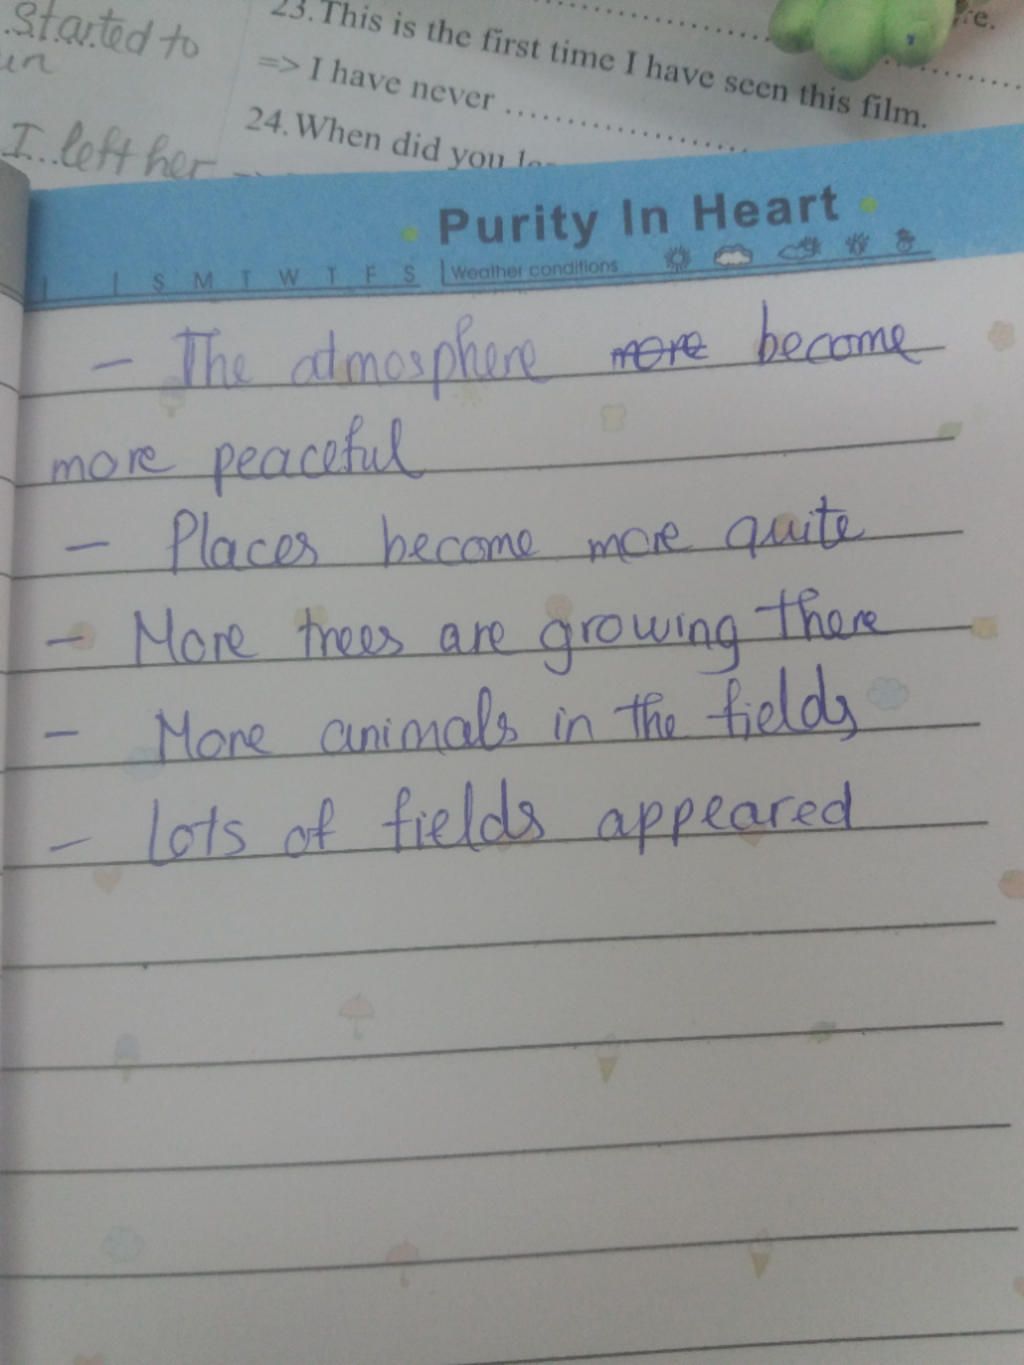 started to
in
I..left her
23. This is the first time I have seen this film.
=> I have never ....................
24. When did you
re.
Purity In Heart
S M T W T F S Weather conditions
- The atmosphere more become
more peaceful
- Places become more quite
- More trees are growing there
- More animals in the fields
- Lots of fields appeared